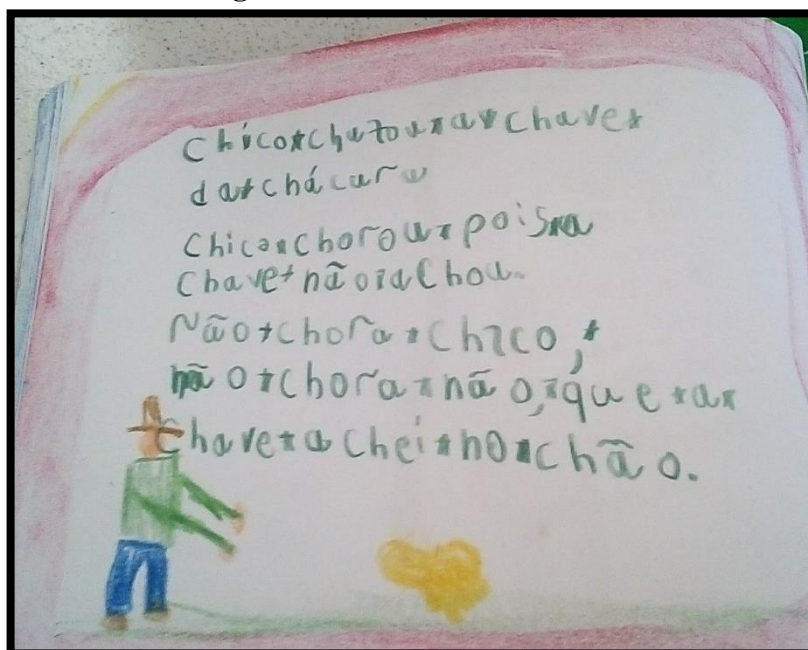 Chico*chutou*a*chave*
da*chácara
Chico*chorou*pois*a
Chave*não*achou.
Não*chora*Chico,*
não*chora*não,*que*a*
Chave*achei*no*chão.